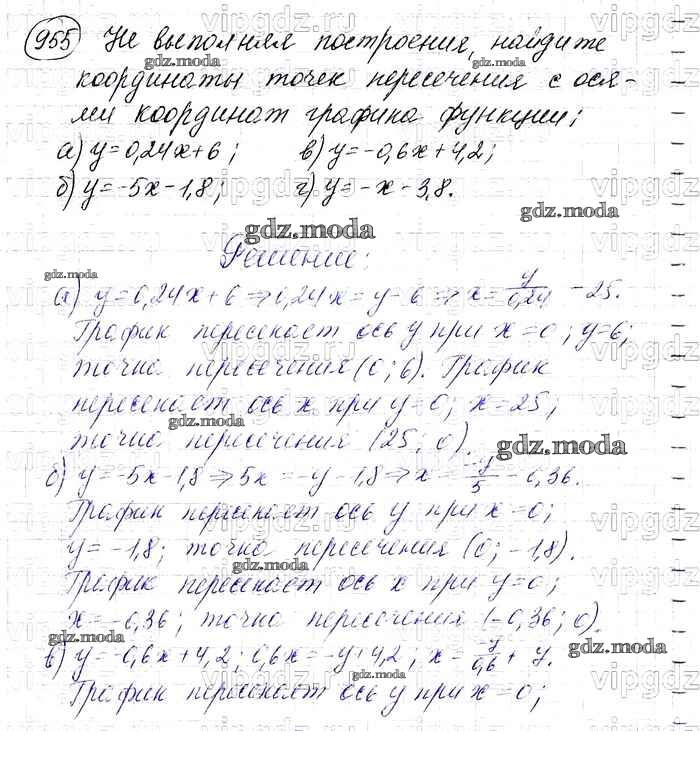 955 Не выполняя построения, найдите
координаты точек пересечения с ося-
ми координат графика функции:
а) y=0,24x+6; в) y=-0,6x+4,2;
б) y=-5x-1,8; г) y=-x-3,8.
gdz.moda
gdz.moda
Решение:
gdz.moda
а) y=0,24x+6 ⇒ 0,24x=y-6 ⇒ x=y/0,24 -25.
График пересекает ось y при x=0; y=6;
точка пересечения (0; 6). График
пересекает ось x при y=0; x=25;
gdz.moda
точка пересечения (25; 0).
gdz.moda
б) y=-5x-1,8 ⇒ 5x=-y-1,8 ⇒ x=-y/5 -0,36.
График пересекает ось y при x=0;
y=-1,8; точка пересечения (0; -1,8).
gdz.moda
График пересекает ось x при y=0;
x=-0,36; точка пересечения (-0,36; 0)
gdz.moda
gdz.moda
в) y=-0,6x+4,2; 0,6x=-y+4,2; x=-y/0,6 + 7.
gdz.moda
График пересекает ось y при x=0;